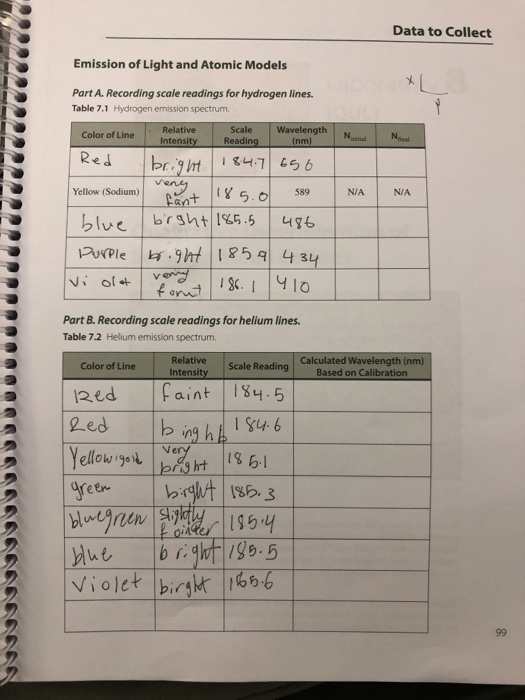 Data to Collect
Emission of Light and Atomic Models
x
y
Part A. Recording scale readings for hydrogen lines.
Table 7.1 Hydrogen emission spectrum.
Color of Line Relative Intensity Scale Reading Wavelength (nm) Ninitial Nfinal
Red bright 184.7 656
Yellow (Sodium) very fant 185.0 589 N/A N/A
blue brght 185.5 486
Purple bright 1859 434
Violet very 186.1 410
Part B. Recording scale readings for helium lines.
Table 7.2 Helium emission spectrum.
Color of Line Relative Intensity Scale Reading Calculated Wavelength (nm) Based on Calibration
Red faint 184.5
Red 184.6
Yellow/gold very bright 185.1
green birght 185.3
bluegreen slightly 185.4
blue bright 185.5
Violet birght 185.6
99